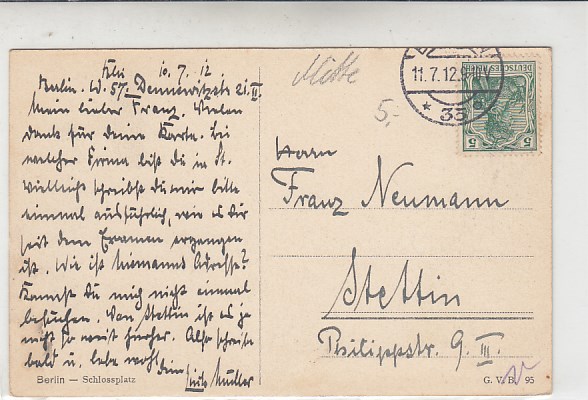 10.7.12
Berlin. W. 57. Dennewitzstr 21.II
Mein lieber Franz. Vielen
Dank für deine Karte. Bei
welcher Firma bist du in St.
Vielleicht schreibst du mir bitte
einmal ausführlich, wie es dir
seit dem Examen ergangen
ist. Wie ist Niemanns Adresse?
Kannst Du mich nicht einmal
besuchen. Von Stettin ist es ja
nicht so weit hierher. Also schreibe
bald u. lebe wohl
dein
Müller
Berlin — Schlossplatz
Mitte
5,-
11.7.12.9-10V
* 35
DEUTSCHES REICH
5 5
Herrn
Franz Neumann
Stettin
Philippstr. 9. III.
G. V. B. 95